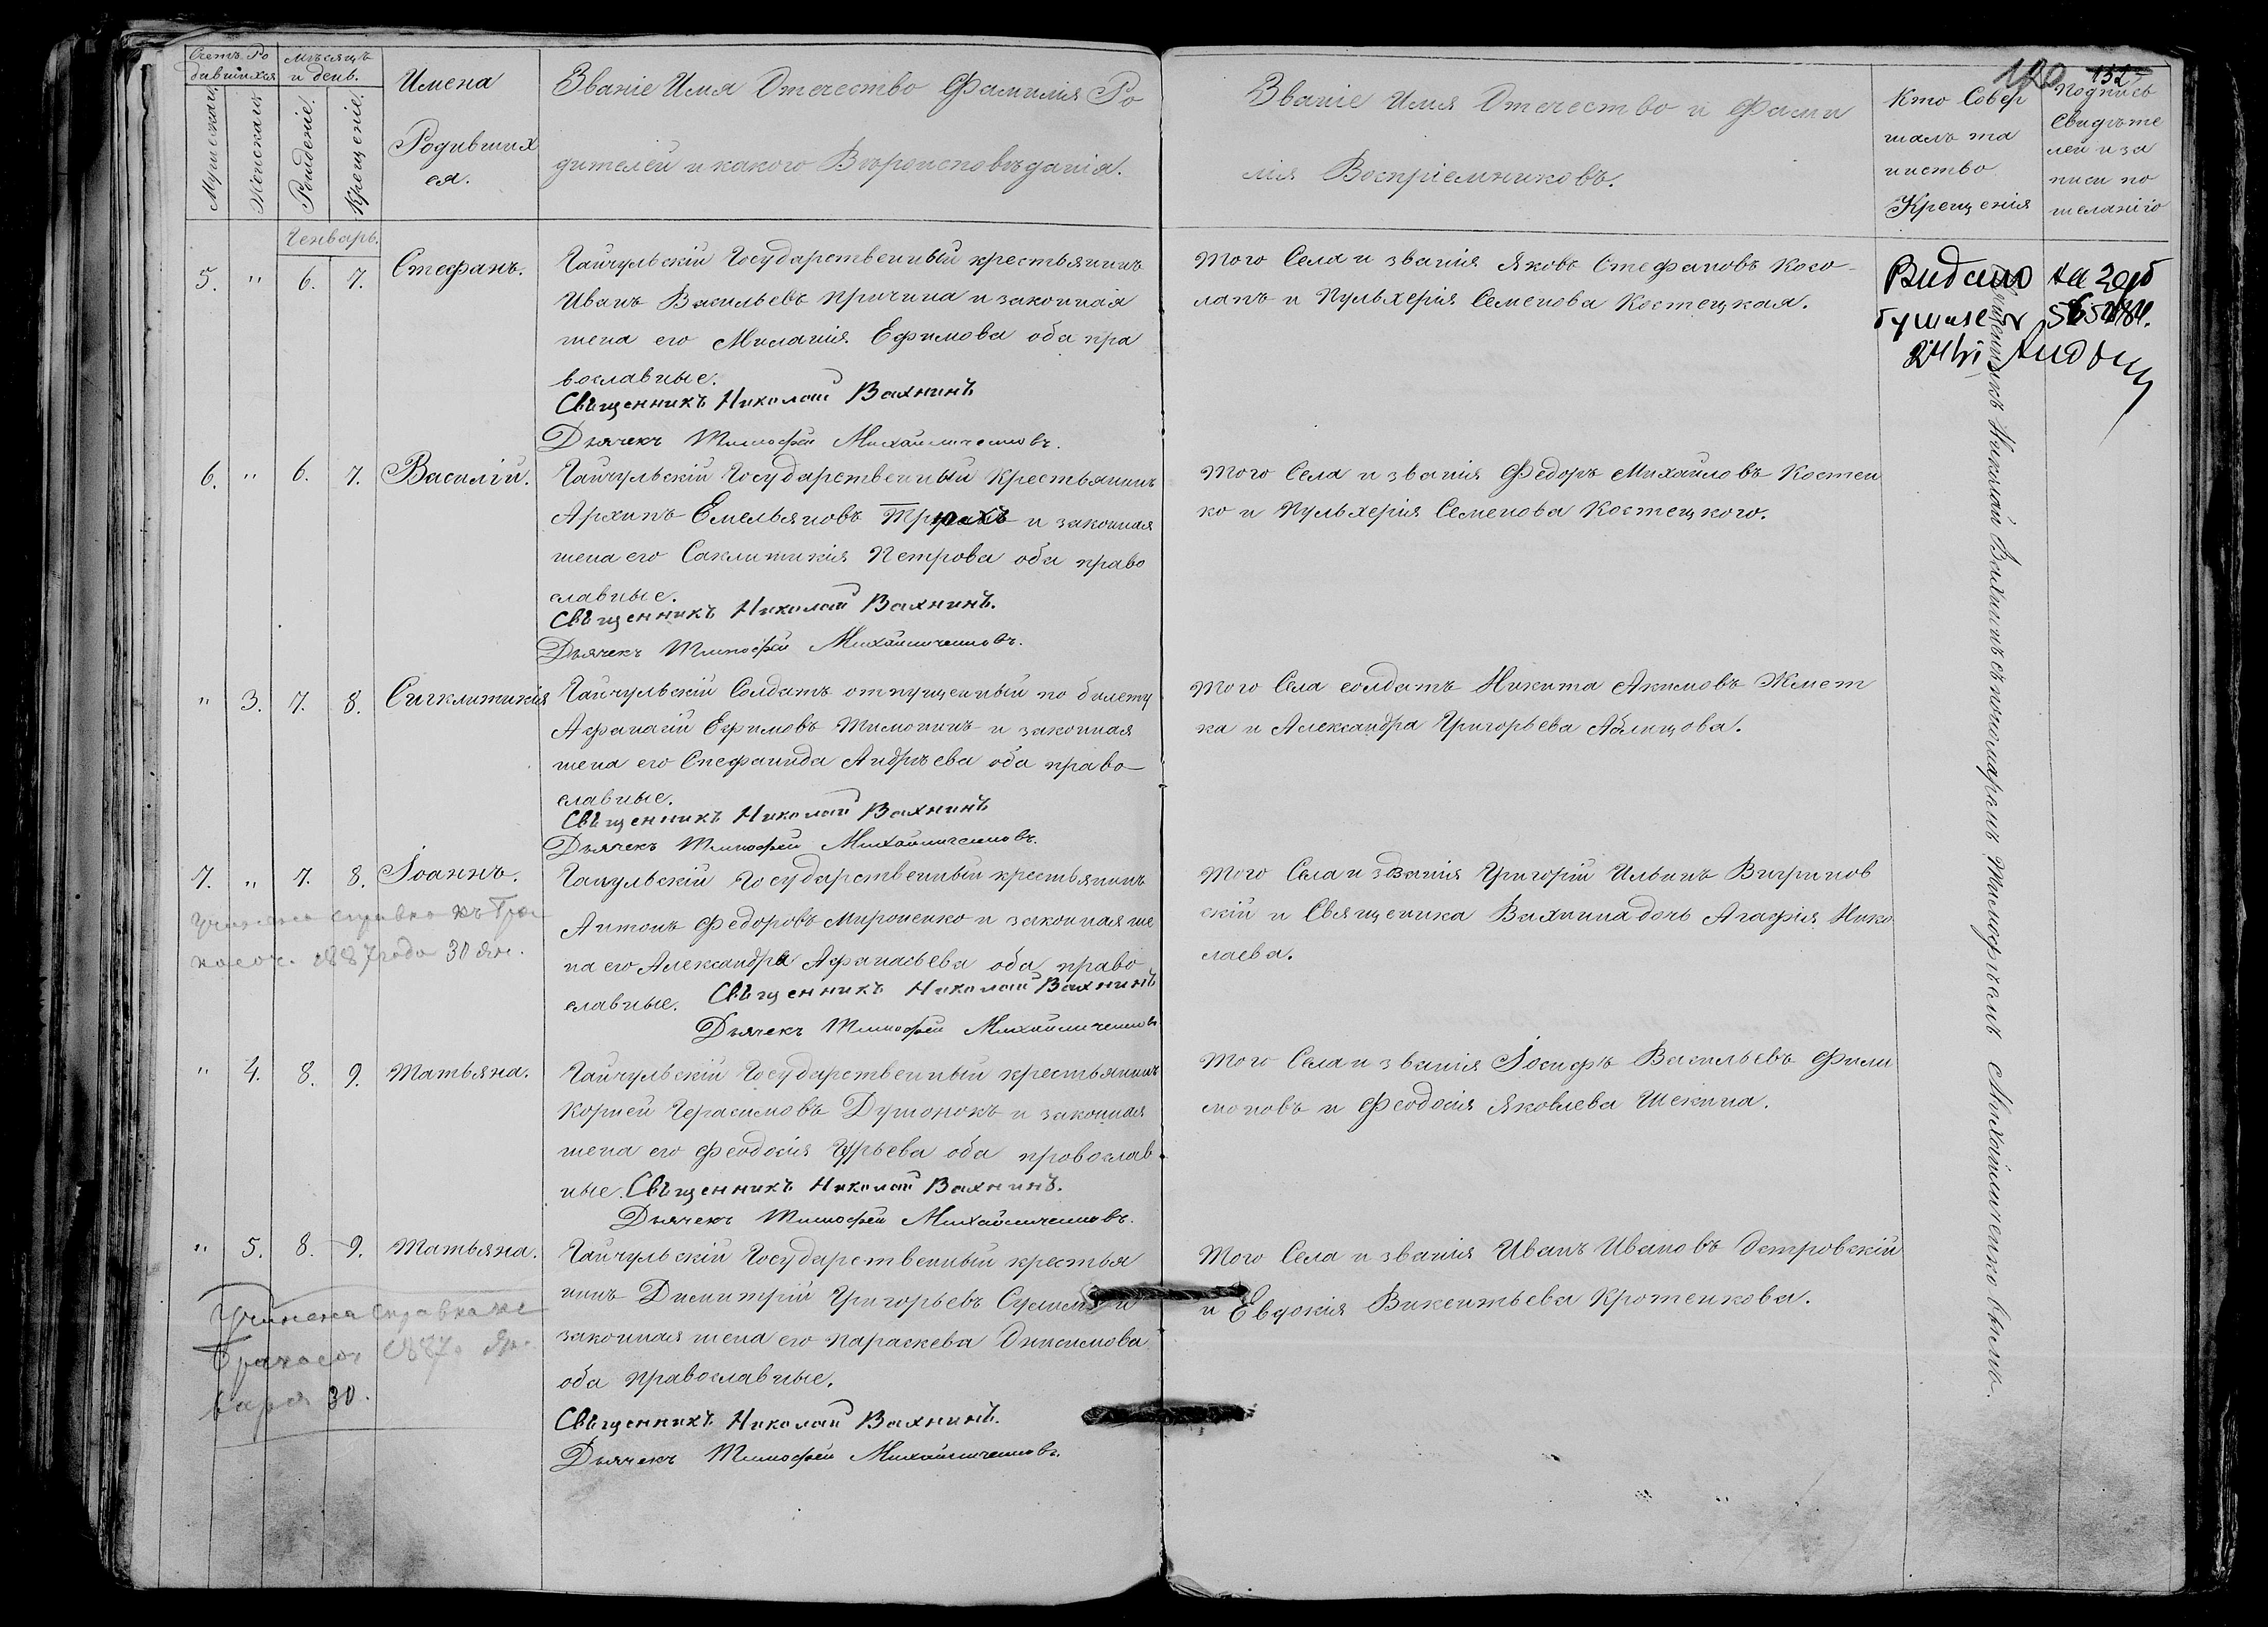 120 152
Счетъ Ро
дившихся
Мужескаго.
Женскаго
мѣсяцъ
и день.
Рожденіе.
Крещеніе.
Имена
Родивших
ся.
Званіе Имя Отечество Фамилія Ро
дителей и какого Вѣроисповѣданія.
Званіе Имя Отечество и Фами
лія Воспріемниковъ.
Кто Совер
шалъ та
инство
Крещенія
Подпись
Свидѣте
лей и за
писи по
желанію
Генварь.
5. " 6. 7. Стефанъ.
Гайчульскій Государственный крестьянинъ
Иванъ Васильевъ Причина и законная
жена его Миланія Ефимова оба пра
вославные.
Свѣщенникъ Николай Вахнинъ
Дьячекъ Тимофей Михайличенковъ.
Того Села и званія Яковъ Стефановъ Косо-
лапъ и Пульхерія Семенова Костецкая.
Видано на
6. " 6. 7. Василій.
Гайчульскій Государственный Крестьянинъ
Архипъ Емельяновъ и законная
жена его Саклитикія Петрова оба право
славные.
Свѣщенникъ Николай Вахнинъ.
Дьячекъ Тимофей Михайличенковъ.
Того Села и званія Федоръ Михайловъ Костен
ко и Пульхерія Семенова Костецкого.
" 3. 7. 8. Сигклитикія
Гайчульскій Солдатъ отпущенный по билету
Афанасій Ефимовъ Тимошинъ и законная
жена его Стефанида Андрѣева оба право-
славные.
Свѣщенникъ Николай Вахнинъ
Дьячекъ Тимофей Михайличенковъ.
Того Села солдатъ Никита Акимовъ Жмет
ка и Александра Григорьева Аблицова.
7. " 7. 8. Іоаннъ.
Гайчульскій Государственный крестьянинъ
Антонъ Федоровъ Мироненко и законная же
на его Александра Афанасьева оба право
славные. Свѣщенникъ Николай Вахнинъ
Дьячекъ Тимофей Михайличенковъ
Того Села и званія Григорій Ильинъ Вигринов
скій и Священика Вахнина дочь Агафія Нико
лаева.
Учинена справка къ Бра
косоч. 1887 года 30 Ян.
" 4. 8. 9. Татьяна.
Гайчульскій Государственный крестьянинъ
Корней Герасимовъ Душонокъ и законная
жена его Феодосія Гурьева оба провослав
ные. Свѣщенникъ Николай Вахнинъ.
Дьячекъ Тимофей Михайличенковъ.
Того Села и званія Іосифъ Васильевъ Фили
моновъ и Феодосія Яковлева Шекина.
" 5. 8. 9. Татьяна.
Гайчульскій Государственный крестья
нинъ Димитрій Григорьевъ и
законная жена его Параскева Онисимова
оба православные.
Свѣщенникъ Николай Вахнинъ.
Дьячекъ Тимофей Михайличенковъ.
Того Села и званія Иванъ Ивановъ Островскій
и Евдокія Викентьева Кротенкова.
Учинена справка къ
Бракосоч 1887 г. Ян-
варя 30.
Священникъ Николай Вахнинъ съ пономаремъ Тимофѣемъ Михайличенко вымъ.